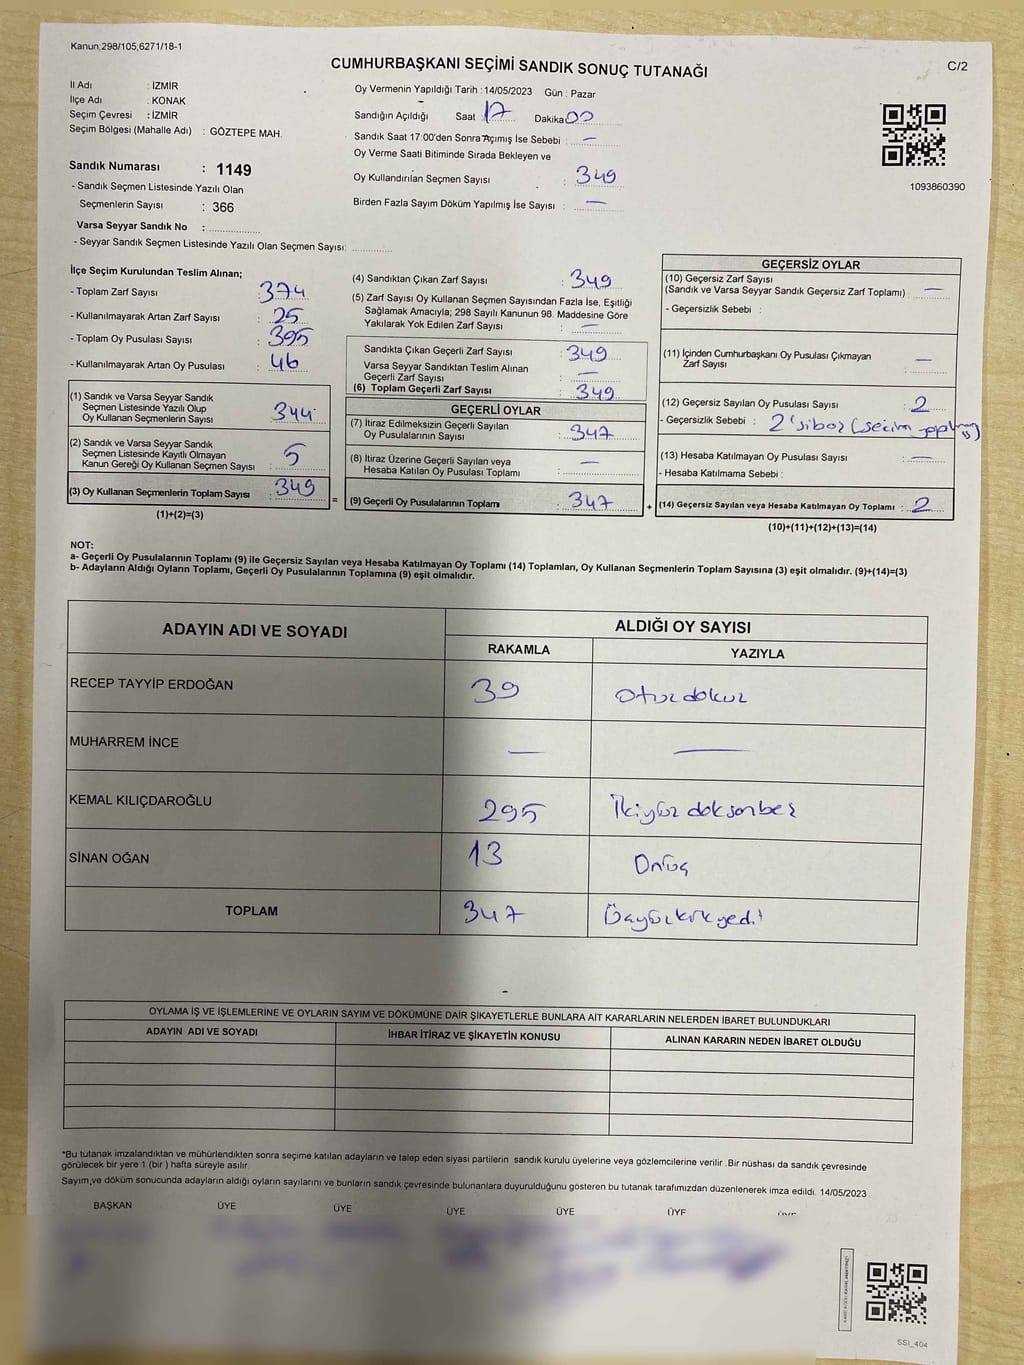 Kanun;298/105;6271/18-1
C/2
CUMHURBAŞKANI SEÇİMİ SANDIK SONUÇ TUTANAĞI
İl Adı : İZMİR
İlçe Adı : KONAK
Seçim Çevresi : İZMİR
Seçim Bölgesi (Mahalle Adı) : GÖZTEPE MAH.
Sandık Numarası : 1149
- Sandık Seçmen Listesinde Yazılı Olan
Seçmenlerin Sayısı : 366
Varsa Seyyar Sandık No :
- Seyyar Sandık Seçmen Listesinde Yazılı Olan Seçmen Sayısı:
Oy Vermenin Yapıldığı Tarih : 14/05/2023 Gün : Pazar
Sandığın Açıldığı Saat : 17 Dakika 00
Sandık Saat 17:00'den Sonra Açımış İse Sebebi : —
Oy Verme Saati Bitiminde Sırada Bekleyen ve
Oy Kullandırılan Seçmen Sayısı : 349
Birden Fazla Sayım Döküm Yapılmış İse Sayısı : —
1093860390
İlçe Seçim Kurulundan Teslim Alınan;
- Toplam Zarf Sayısı : 374
- Kullanılmayarak Artan Zarf Sayısı : 25
- Toplam Oy Pusulası Sayısı : 395
- Kullanılmayarak Artan Oy Pusulası : 46
(1) Sandık ve Varsa Seyyar Sandık
Seçmen Listesinde Yazılı Olup
Oy Kullanan Seçmenlerin Sayısı : 344
(2) Sandık ve Varsa Seyyar Sandık
Seçmen Listesinde Kayıtlı Olmayan
Kanun Gereği Oy Kullanan Seçmen Sayısı : 5
(3) Oy Kullanan Seçmenlerin Toplam Sayısı : 349
(1)+(2)=(3)
(4) Sandıktan Çıkan Zarf Sayısı : 349
(5) Zarf Sayısı Oy Kullanan Seçmen Sayısından Fazla İse, Eşitliği
Sağlamak Amacıyla; 298 Sayılı Kanunun 98. Maddesine Göre
Yakılarak Yok Edilen Zarf Sayısı : —
Sandıkta Çıkan Geçerli Zarf Sayısı : 349
Varsa Seyyar Sandıktan Teslim Alınan
Geçerli Zarf Sayısı : —
(6) Toplam Geçerli Zarf Sayısı : 349
GEÇERLİ OYLAR
(7) İtiraz Edilmeksizin Geçerli Sayılan
Oy Pusulalarının Sayısı : 347
(8) İtiraz Üzerine Geçerli Sayılan veya
Hesaba Katılan Oy Pusulası Toplamı : —
= (9) Geçerli Oy Pusulalarının Toplamı : 347
GEÇERSİZ OYLAR
(10) Geçersiz Zarf Sayısı
(Sandık ve Varsa Seyyar Sandık Geçersiz Zarf Toplamı) : —
- Geçersizlik Sebebi :
(11) İçinden Cumhurbaşkanı Oy Pusulası Çıkmayan
Zarf Sayısı : —
(12) Geçersiz Sayılan Oy Pusulası Sayısı : 2
- Geçersizlik Sebebi :
(13) Hesaba Katılmayan Oy Pusulası Sayısı : —
- Hesaba Katılmama Sebebi :
+ (14) Geçersiz Sayılan veya Hesaba Katılmayan Oy Toplamı : 2
(10)+(11)+(12)+(13)=(14)
NOT:
a- Geçerli Oy Pusulalarının Toplamı (9) ile Geçersiz Sayılan veya Hesaba Katılmayan Oy Toplamı (14) Toplamları, Oy Kullanan Seçmenlerin Toplam Sayısına (3) eşit olmalıdır. (9)+(14)=(3)
b- Adayların Aldığı Oyların Toplamı, Geçerli Oy Pusulalarının Toplamına (9) eşit olmalıdır.
ADAYIN ADI VE SOYADI ALDIĞI OY SAYISI
RAKAMLA YAZIYLA
RECEP TAYYİP ERDOĞAN 39 otuzdokuz
MUHARREM İNCE — —
KEMAL KILIÇDAROĞLU 295 İkiyüz doksanbeş
SİNAN OĞAN 13 Onüç
TOPLAM 347 Üçyüzkırkyedi
OYLAMA İŞ VE İŞLEMLERİNE VE OYLARIN SAYIM VE DÖKÜMÜNE DAİR ŞİKAYETLERLE BUNLARA AİT KARARLARIN NELERDEN İBARET BULUNDUKLARI
ADAYIN ADI VE SOYADI İHBAR İTİRAZ VE ŞİKAYETİN KONUSU ALINAN KARARIN NEDEN İBARET OLDUĞU
*Bu tutanak imzalandıktan ve mühürlendikten sonra seçime katılan adayların ve talep eden siyasi partilerin sandık kurulu üyelerine veya gözlemcilerine verilir .Bir nüshası da sandık çevresinde
görülecek bir yere 1 (bir ) hafta süreyle asılır.
Sayım,ve döküm sonucunda adayların aldığı oyların sayılarını ve bunların sandık çevresinde bulunanlara duyurulduğunu gösteren bu tutanak tarafımızdan düzenlenerek imza edildi. 14/05/2023
BAŞKAN ÜYE ÜYE ÜYE ÜYE ÜYE ÜYE
SSI_404